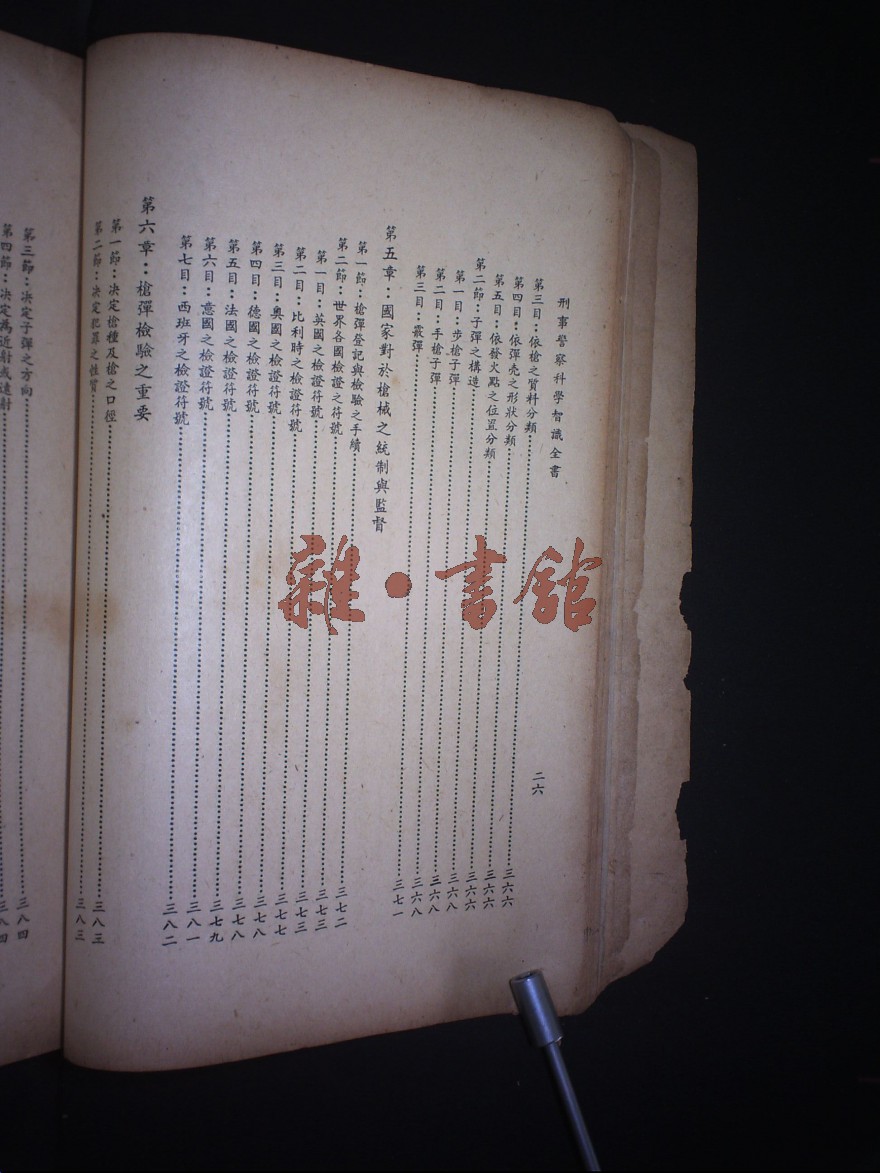 刑事警察科學智識全書 二六
第三目：依槍之質料分類……三六六
第四目：依彈壳之形狀分類……三六六
第五目：依發火點之位置分類……三六六
第二節：子彈之構造……三六八
第一目：步槍子彈……三六八
第二目：手槍子彈……三六八
第三目：霰彈……三七一
第五章：國家對於槍械之統制與監督
第一節：槍彈登記與檢驗之手續……三七二
第二節：世界各國檢證之符號……三七三
第一目：英國之檢證符號……三七三
第二目：比利時之檢證符號……三七七
第三目：奧國之檢證符號……三七八
第四目：德國之檢證符號……三七八
第五目：法國之檢證符號……三七九
第六目：意國之檢證符號……三八一
第七目：西班牙之檢證符號……三八二
第六章：槍彈檢驗之重要
第一節：决定槍種及槍之口徑……三八三
第二節：决定犯罪之性質……三八三
第三節：决定子彈之方向……三八四
第四節：决定爲近射或遠射……三八四
雜·書館